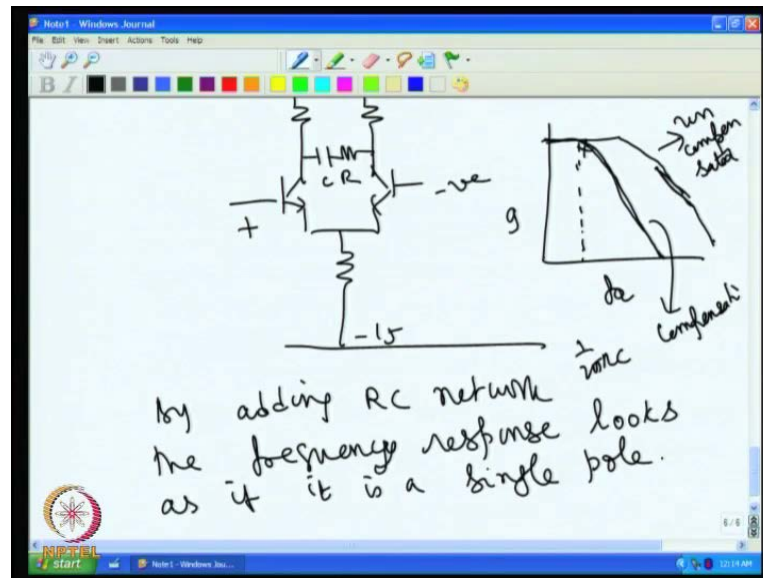 Note1 - Windows Journal
File Edit View Insert Actions Tools Help
B I
un
compen
sated
C R
+
-ve
g
-15
1
2πRC
By adding RC network
the frequency response looks
as if it is a single pole.
6/6
NPTEL
start
Note1 - Windows Jou...
12:14 AM